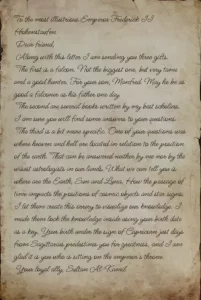 To the most illustrious Emperor Frederick II
Hohenstaufen
Dear friend,
Along with this letter I am sending you three gifts.
The first is a falcon. Not the biggest one, but very tame
and a good hunter. For your son, Manfred. May he be as
good a falconer as his father one day.
The second are several books written by my best scholars.
I am sure you will find some answers to your questions.
The third is a bit more specific. One of your questions was
where heaven and hell are located in relation to the position
of the earth. That can be answered neither by me nor by the
wisest astrologists in our lands. What we can tell you is
where are the Earth, Sun and Luna. How the passage of
time impacts the positions of cosmic objects and star signs.
I let them create this to visualize our knowledge. I
made them lock the knowledge inside using your birth date
as a key. Your birth under the sign of Capricorn just days
from Sagittarius predestines you for greatness, and I am
glad it is you who is sitting on the emperor's throne.
Your loyal ally, Sultan Al-Kamil